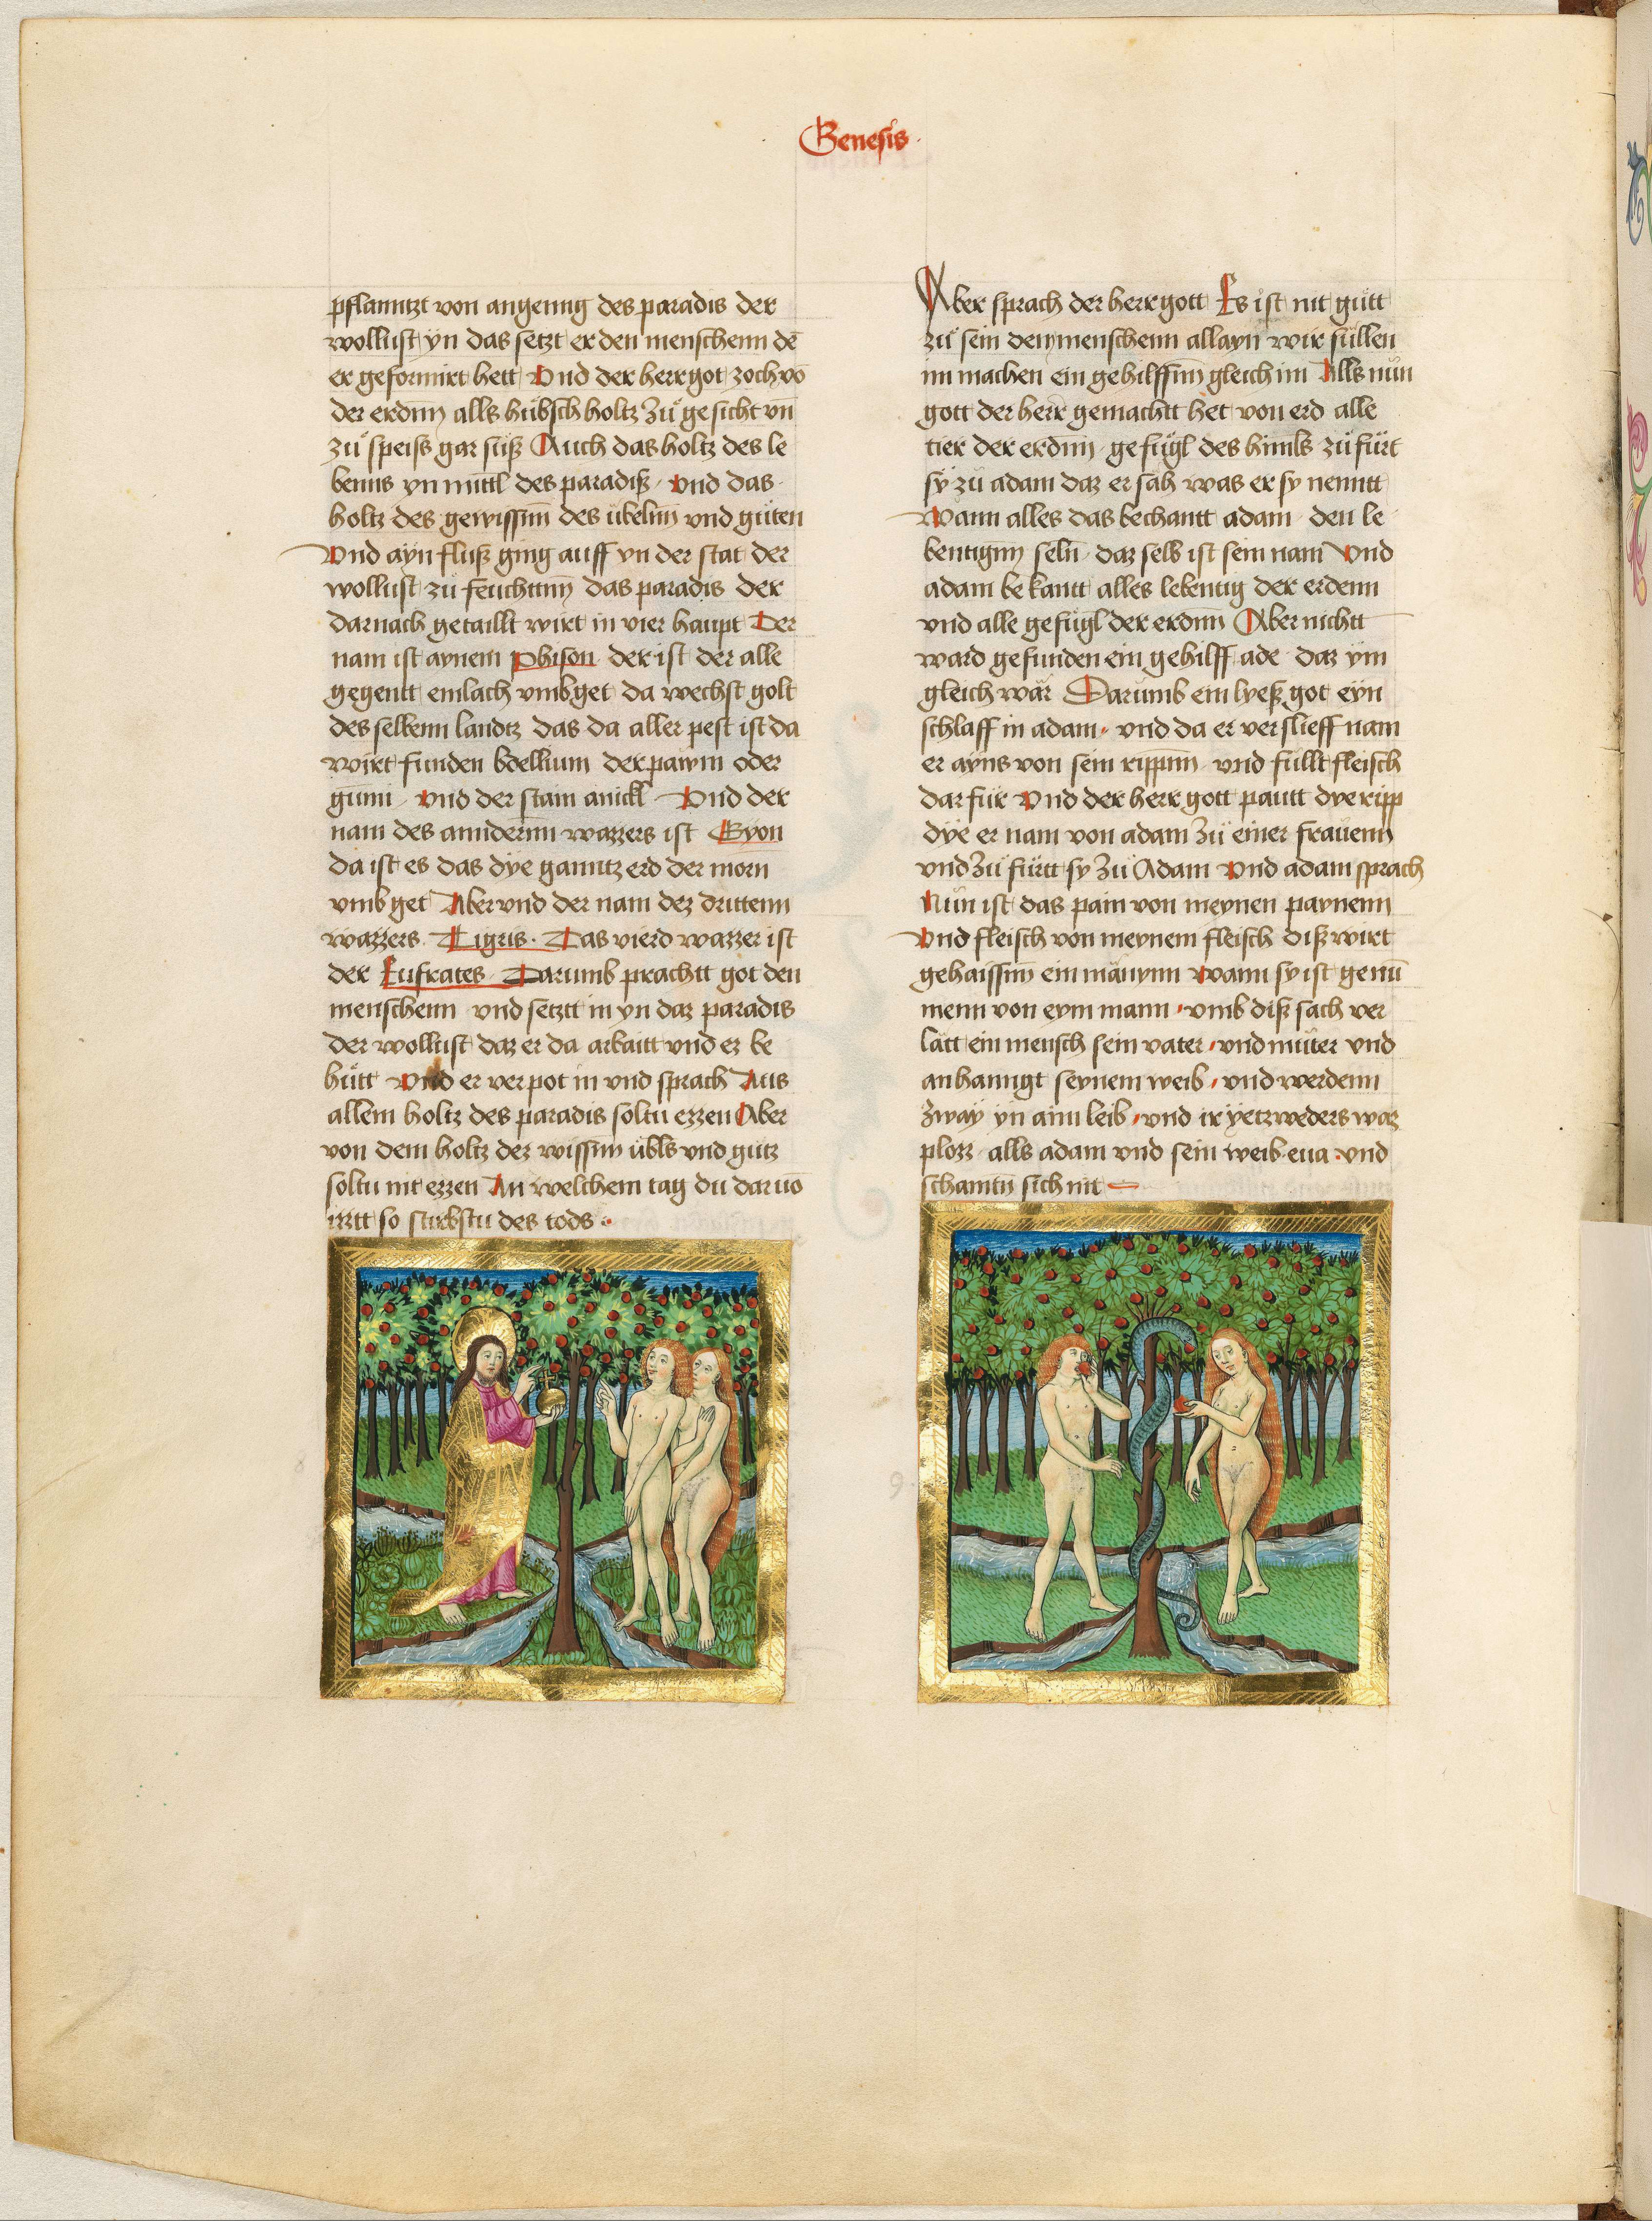 Genesis
pflanntzt von angenng des paradis der
wollust yn das setzt er den menschenn dē
er geformirt hett Vnd der herr got zoch vō
der erdnn alls hübsch holtz Zů gesicht vn̄
zů speiss gar süß Auch das holtz des le
benns yn mittl des paradiß Vnd das
holtz des gewissnn des übelnn vnd gůten
Vnd ayn fluß ging auff yn der stat der
wollust zů feuchttnn das paradis der
darnach getaillt wirt in vier haupt Der
nam ist aynem Phison der ist der alle
gegentt emlach vmbget da wechst golt
des selbenn landtz das da aller pest ist da
wirt funden bdellium der pawm oder
gum̄i Vnd der stain anickl Vnd der
nam des annderīnn wazzers ist Gyon
da ist es das dye ganntz erd der morn
vmb get Aber vnd der nam dez drittenn
wazzers Tigris Das vierd wazzer ist
der Eufrates Darumb prachtt got den
menschenn vnd setztt in yn daz paradis
der wollust daz er da arbaitt vnd ez be
hůtt Vnd er verpot in vnd sprach Aus
allem holtz des paradis soltu ezzen Aber
von dem holtz dez wissnn übls vnd gutz
soltu nit ezzen An welchem tag du daruō
irrtt so stirbstu des tods
Aber sprach der herr gott Es ist nit gůtt
zů sein dem menschenn allayn wir süllen
im machen ein gehilffīnn gleich im Alls nůn
gott der herr gemachtt het von erd alle
tier der erdnn gefügl des himls zů fürt
sÿ zů adam daz er säh was er sy nenntt
Wann alles das bechantt adam den le
bentignn seln̄ daz selb ist sein nam Vnd
adam bekantt alles lebentig der erdenn
vnd alle gefügl der erdnn Aber nichtt
ward gefunden ein gehilff ade daz ym
gleich wär Darumb ein lyeß got eyn
schlaff in adam vnd da er verslieff nam
er ayns von sein rippnn vnd füllt fleisch
dar für Vnd der herr gott pautt dye ripp
dye er nam von adam Zů einer frauenn
vnd Zů fürtt sy Zů Adam Vnd adam sprach
Nůn ist das pain von meynen paynenn
Vnd fleisch von meynem fleisch diß wirt
gehaissnn ein männynn Wann sy ist genū
menn von eym mann vmb diß sach ver
lätt ein mensch sein vater vnd můter vnd
anhanngt seynem weib vnd werdenn
Zway yn aim leib vnd ir yetzweders waz
plozz alls adam vnd sein weib eua vnd
schamtn̄ sich nit